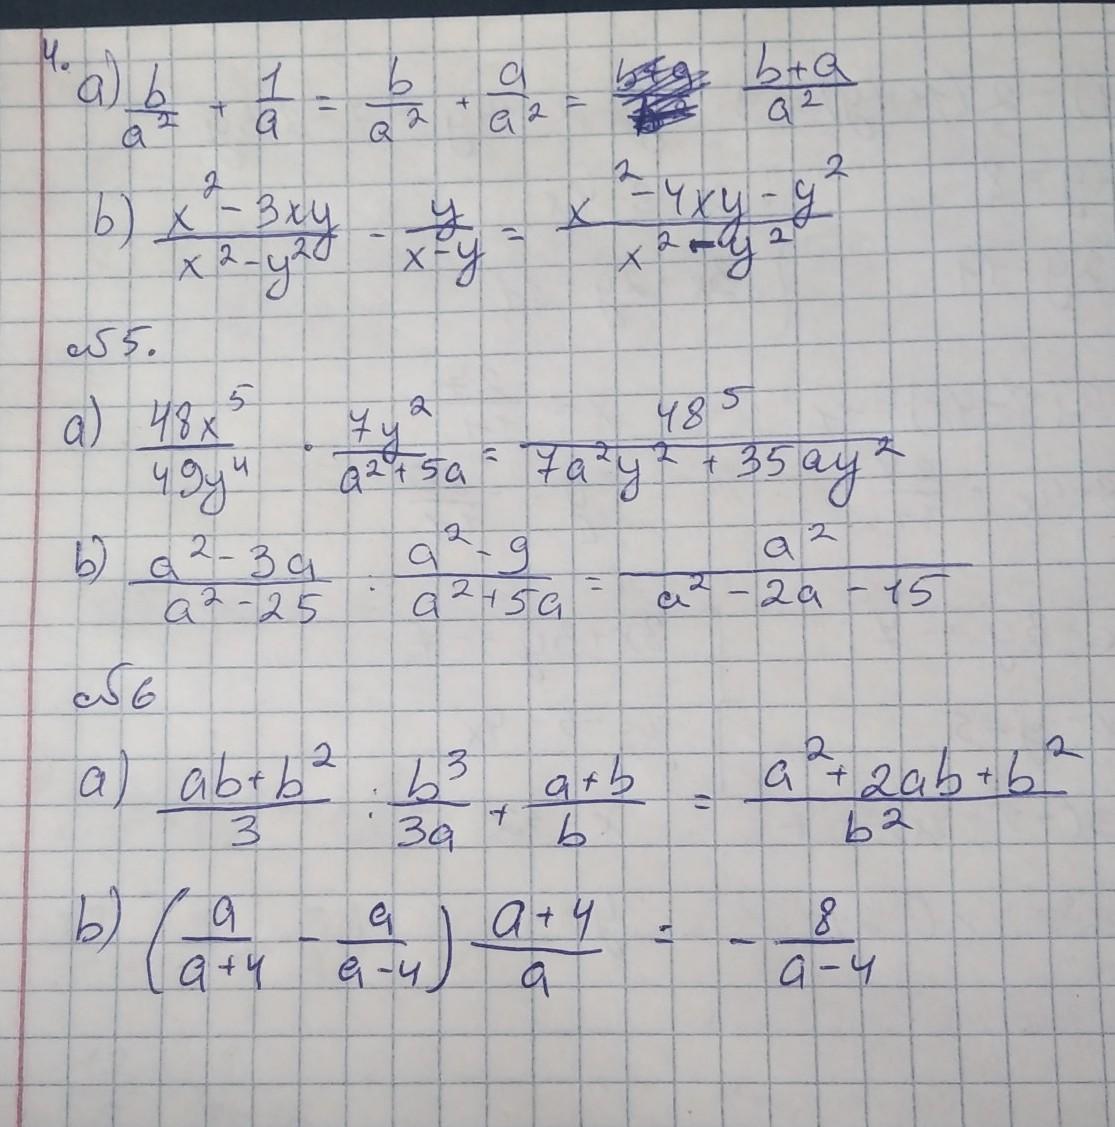 4.
a) b/a² + 1/a = b/a² + a/a² = b+a/a²
b) x²-3xy/x²-y² - y/x-y = x²-4xy-y²/x²-y²
№5.
a) 48x⁵/49y⁴ · 7y²/a²+5a = 48⁵/7a²y²+35ay²
b) a²-3a/a²-25 : a²-9/a²+5a = a²/a²-2a-15
№6
a) ab+b²/3 : b³/3a + a+b/b = a²+2ab+b²/b²
b) (a/a+4 - a/a-4) a+4/a = - 8/a-4